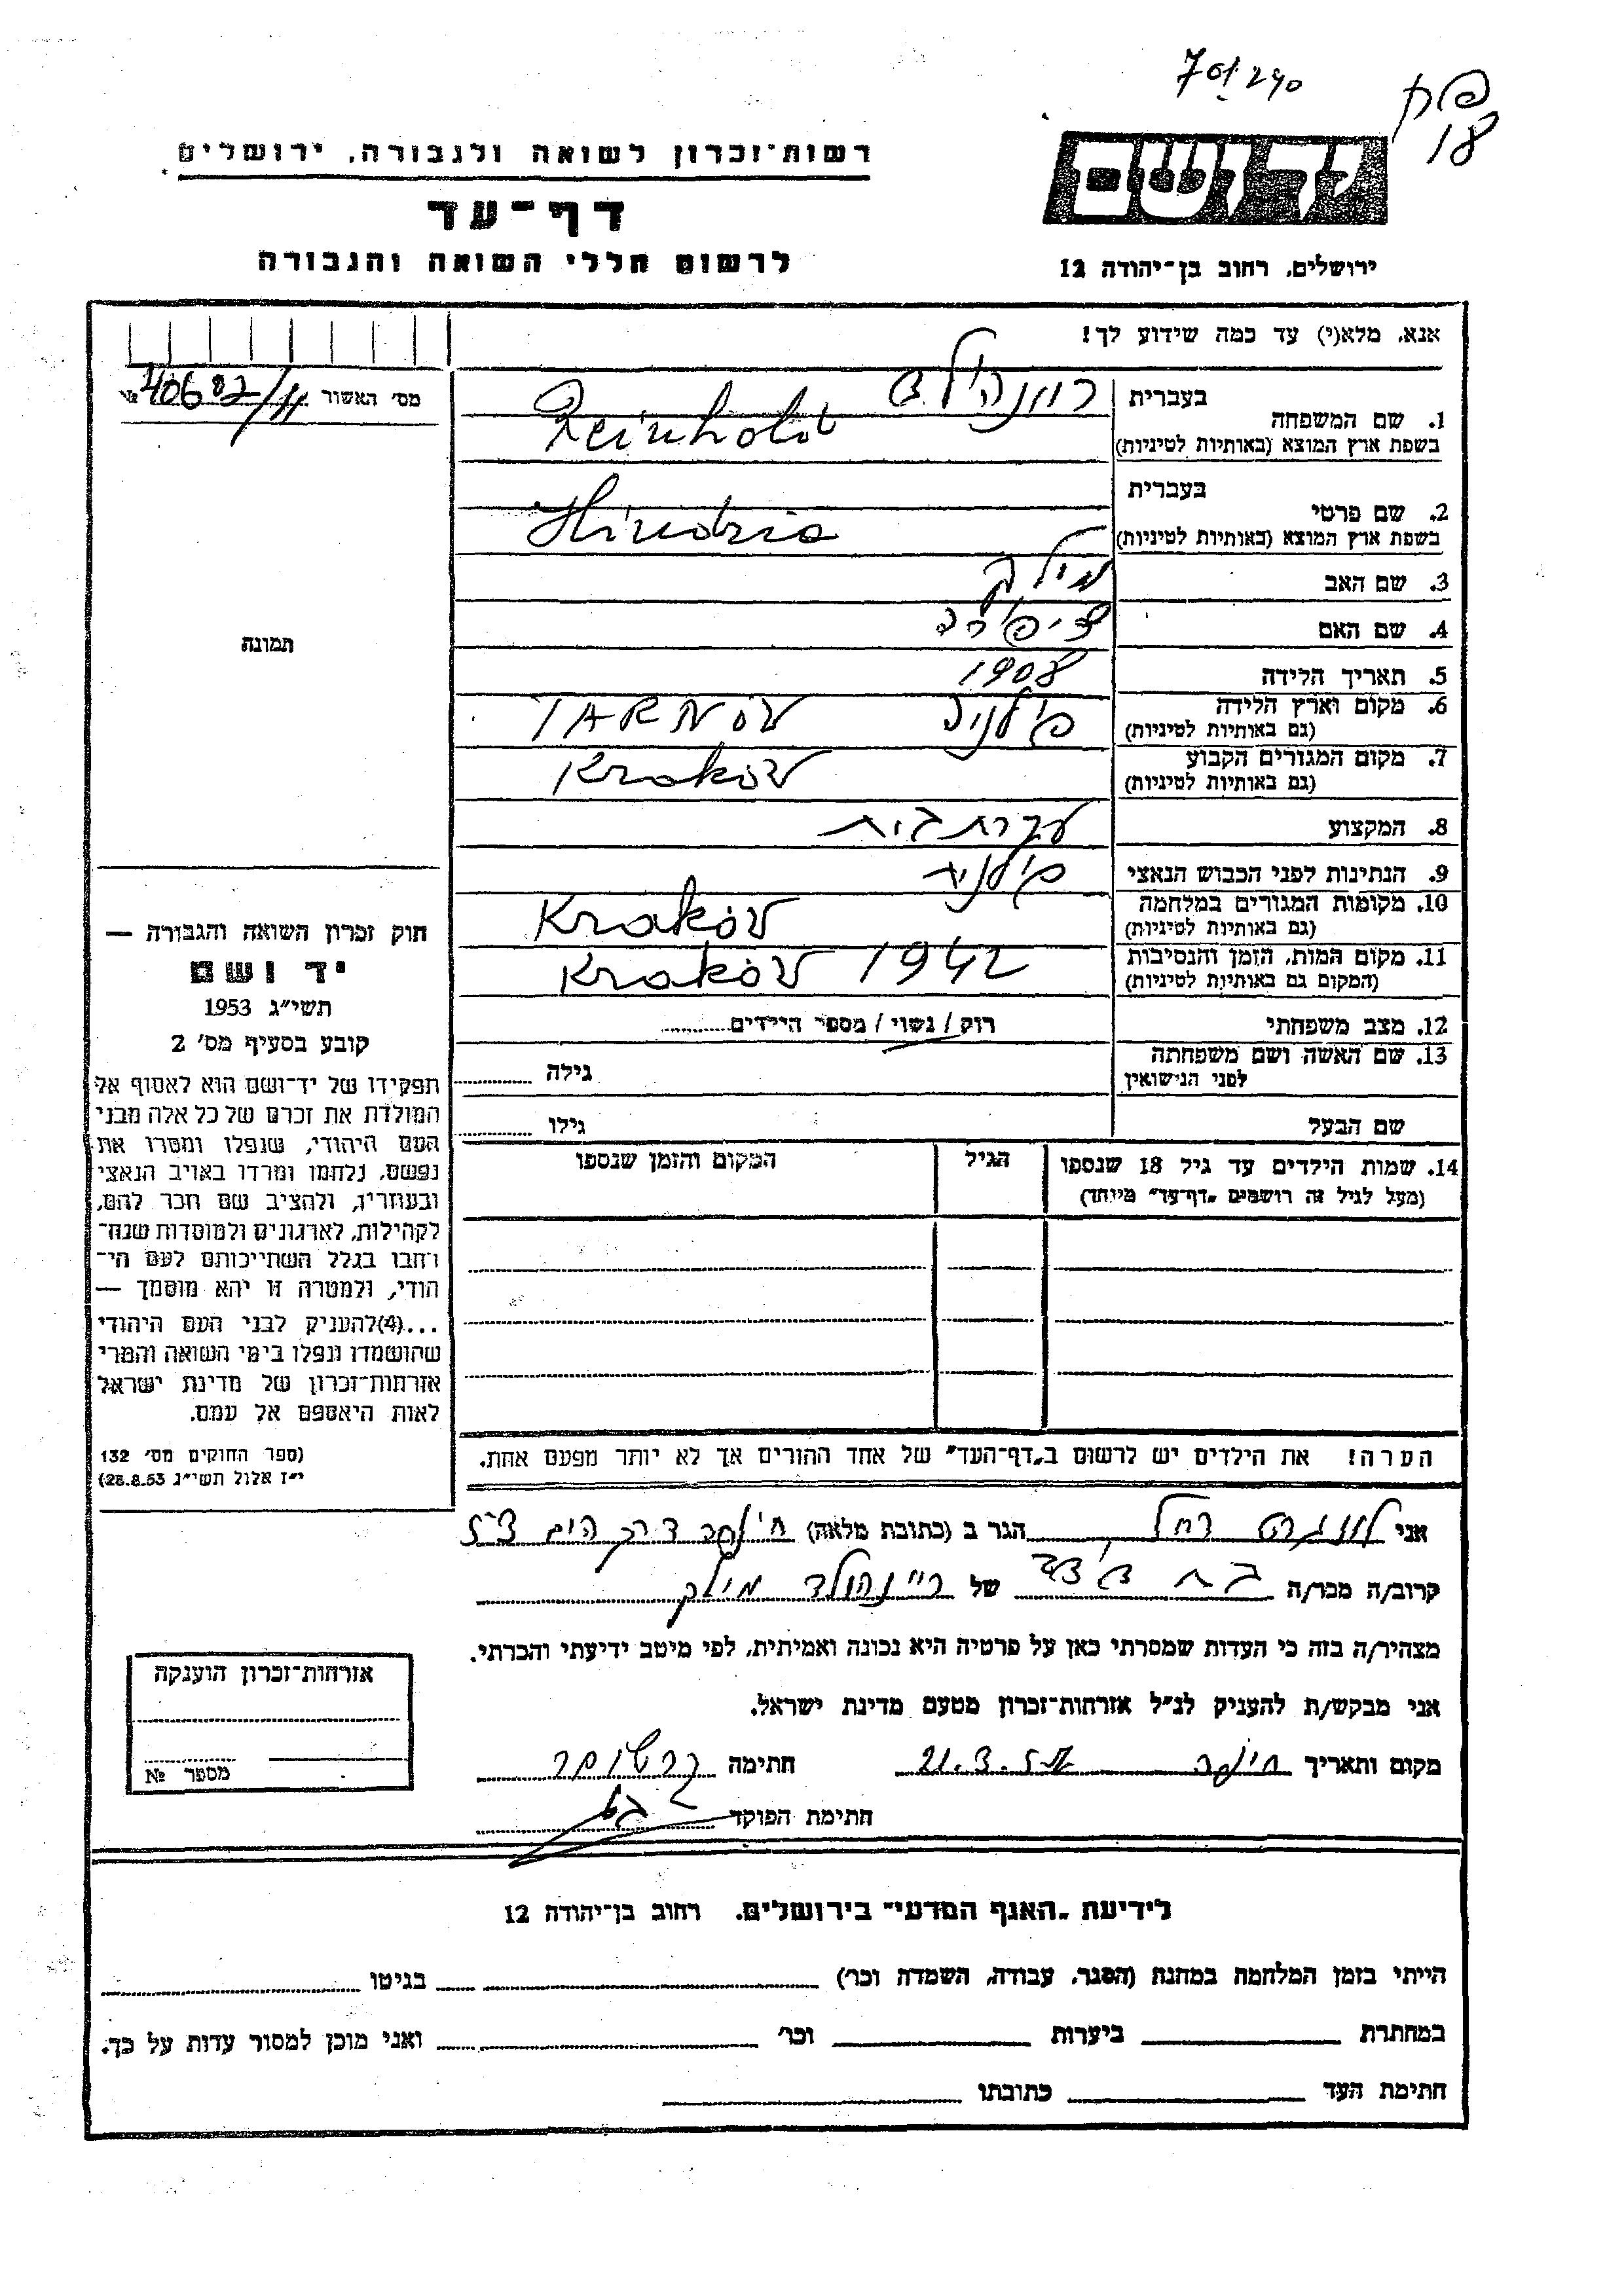 701290
18
רשות־זכרון לשואה ולגבורה, ירושלים
יד ושם
דף־עד
לרשום חללי השואה והגבורה
ירושלים, רחוב בן־יהודה 12
אנא, מלא(י) עד כמה שידוע לך!
מס׳ האשור № 40602/11
1. שם המשפחה
בעברית
בשפת ארץ המוצא (באותיות לטיניות) Reinhold
2. שם פרטי
בעברית
בשפת ארץ המוצא (באותיות לטיניות)
3. שם האב מילק
4. שם האם ציפורה
5. תאריך הלידה 1908
6. מקום וארץ הלידה פולניה TARNÓV
(גם באותיות לטיניות)
7. מקום המגורים הקבוע Kraków
(גם באותיות לטיניות)
8. המקצוע עקרת בית
9. הנתינות לפני הכבוש הנאצי פולנית
10. מקומות המגורים במלחמה Kraków
(גם באותיות לטיניות)
11. מקום המות, הזמן והנסיבות Kraków 1942
(המקום גם באותיות לטיניות)
12. מצב משפחתי רוק / נשוי / מספר הילדים
13. שם האשה ושם משפחתה
לפני הנישואין גילה
שם הבעל גילו
14. שמות הילדים עד גיל 18 שנספו
(מעל לגיל זה רושמים „דף־עד״ מיוחד)
הגיל
המקום והזמן שנספו
הערה! את הילדים יש לרשום ב„דף־העד״ של אחד ההורים אך לא יותר מפעם אחת.
תמונה
חוק זכרון השואה והגבורה —
יד ושם
תשי״ג 1953
קובע בסעיף מס׳ 2
תפקידו של יד־ושם הוא לאסוף אל
המולדת את זכרם של כל אלה מבני
העם היהודי, שנפלו ומסרו את
נפשם, נלחמו ומרדו באויב הנאצי
ובעוזריו, ולהציב שם וזכר להם,
לקהילות, לארגונים ולמוסדות שנח־
רבו בגלל השתייכותם לעם הי־
הודי, ולמטרה זו יהא מוסמך —
...(4)להעניק לבני העם היהודי
שהושמדו ונפלו בימי השואה והמרי
אזרחות־זכרון של מדינת ישראל
לאות היאספם אל עמם.
(ספר החוקים מס׳ 132
י״ז אלול תשי״ג 28.8.53)
אני רחל הגר ב (כתובת מלאה) חיפה דרך הים
קרוב/ה מכר/ה בת דודה של ריינהולד מילק
מצהיר/ה בזה כי העדות שמסרתי כאן על פרטיה היא נכונה ואמיתית, לפי מיטב ידיעתי והכרתי.
אני מבקש/ת להעניק לנ״ל אזרחות־זכרון מטעם מדינת ישראל.
מקום ותאריך חיפה 21.3. חתימה
חתימת הפוקד
אזרחות־זכרון הוענקה
מספר №
לידיעת „האגף המדעי״ בירושלים, רחוב בן־יהודה 12
הייתי בזמן המלחמה במחנה (הסגר, עבודה, השמדה וכו׳) בגיטו
במחתרת ביערות וכו׳ ואני מוכן למסור עדות על כך.
חתימת העד כתובתו